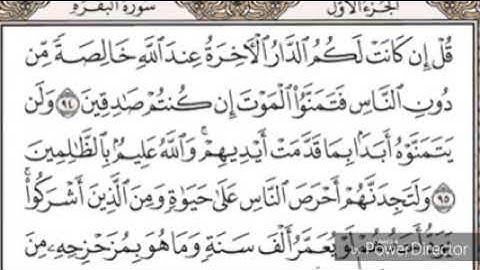 الجزء الأول سورة البقرة
قُلْ إِن كَانَتْ لَكُمُ الدَّارُ الْآخِرَةُ عِندَ اللَّهِ خَالِصَةً مِّن
دُونِ النَّاسِ فَتَمَنَّوُا الْمَوْتَ إِن كُنتُمْ صَادِقِينَ ٩٤ وَلَن
يَتَمَنَّوْهُ أَبَدًا بِمَا قَدَّمَتْ أَيْدِيهِمْ ۗ وَاللَّهُ عَلِيمٌ بِالظَّالِمِينَ
٩٥ وَلَتَجِدَنَّهُمْ أَحْرَصَ النَّاسِ عَلَىٰ حَيَاةٍ وَمِنَ الَّذِينَ أَشْرَكُوا ۚ
لَوْ يُعَمَّرُ أَلْفَ سَنَةٍ وَمَا هُوَ بِمُزَحْزِحِهِ مِنَ
PowerDirector